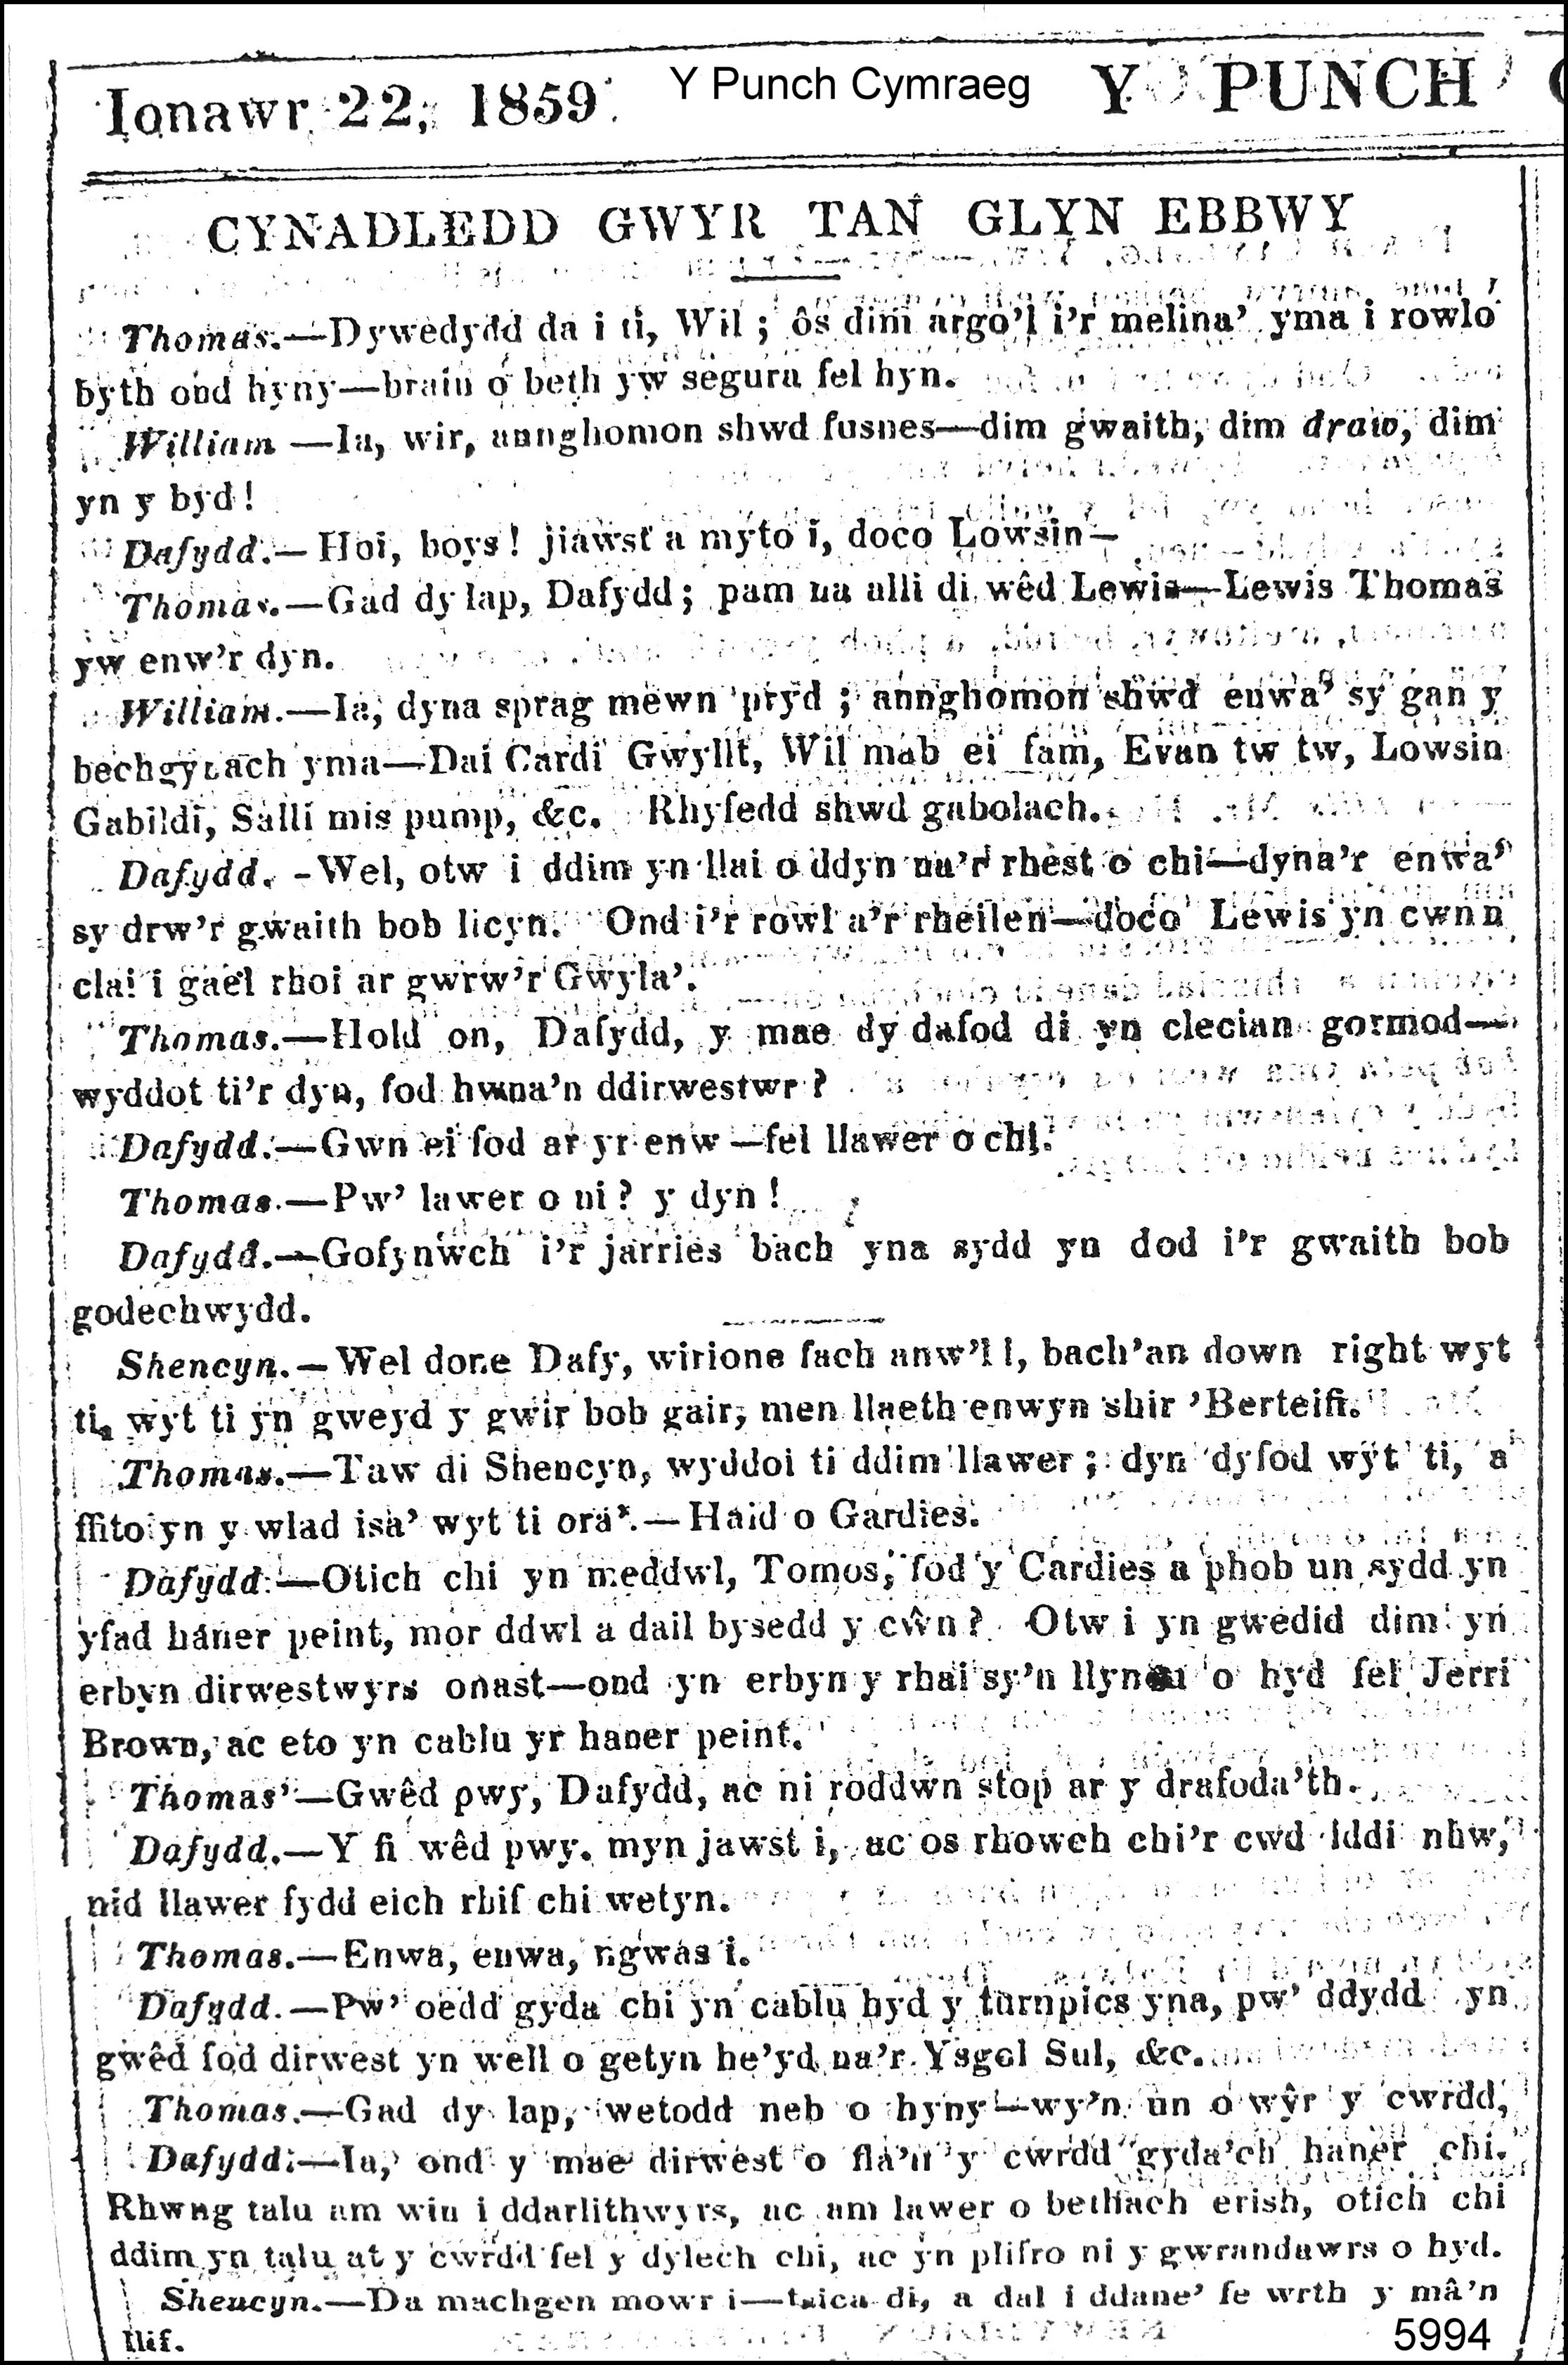 Ionawr 22, 1859. Y Punch Cymraeg Y PUNCH
CYNADLEDD GWYR TAN GLYN EBBWY
Thomas.—Dywedydd da i ti, Wil; ôs dim argo'l i'r melina' yma i rowlo
byth ond hyny—brain o beth yw segura fel hyn.
William —Ia, wir, annghomon shwd fusnes—dim gwaith, dim draw, dim
yn y byd!
Dafydd.—Hoi, boys! jiawst a myto i, doco Lowsin—
Thomas.—Gad dy lap, Dafydd; pam na alli di wêd Lewis—Lewis Thomas
yw enw'r dyn.
William.—Ia, dyna sprag mewn pryd; annghomon shwd enwa' sy gan y
bechgynach yma—Dai Cardi Gwyllt, Wil mab ei fam, Evan tw tw, Lowsin
Gabildi, Salli mis pump, &c. Rhyfedd shwd gabolach.
Dafydd. -Wel, otw i ddim yn llai o ddyn na'r rhest o chi—dyna'r enwa'
sy drw'r gwaith bob licyn. Ond i'r rowl a'r rheilen—doco Lewis yn cwnn
clai i gael rhoi ar gwrw'r Gwyla'.
Thomas.—Hold on, Dafydd, y mae dy dafod di yn clecian gormod—
wyddot ti'r dyn, fod hwna'n ddirwestwr?
Dafydd.—Gwn ei fod ar yr enw—fel llawer o chi.
Thomas.—Pw' lawer o ni? y dyn!
Dafydd.—Gofynwch i'r jarries bach yna sydd yn dod i'r gwaith bob
godechwydd.
Shencyn.—Wel done Dafy, wirione fach anw'l I, bach'an down right wyt
ti, wyt ti yn gweyd y gwir bob gair, men llaeth enwyn shir 'Berteifi.
Thomas.—Taw di Shencyn, wyddoi ti ddim llawer; dyn dyfod wyt ti, a
ffito yn y wlad isa' wyt ti ora'.—Haid o Gardies.
Dafydd.—Otich chi yn meddwl, Tomos, fod y Cardies a phob un sydd yn
yfad haner peint, mor ddwl a dail bysedd y cŵn? Otw i yn gwedid dim yn
erbyn dirwestwyrs onast—ond yn erbyn y rhai sy'n llyncu o hyd fel Jerri
Brown, ac eto yn cablu yr haner peint.
Thomas'—Gwêd pwy, Dafydd, ac ni roddwn stop ar y drafoda'th.
Dafydd.—Y fi wêd pwy. myn jawst i, ac os rhowch chi'r cwd iddi nhw,
nid llawer fydd eich rhif chi wetyn.
Thomas.—Enwa, enwa, ngwas i.
Dafydd.—Pw' oedd gyda chi yn cablu hyd y turnpics yna, pw' ddydd yn
gwêd fod dirwest yn well o getyn he'yd na'r Ysgol Sul, &c.
Thomas.—Gad dy lap, wetodd neb o hyny—wy'n un o wŷr y cwrdd,
Dafydd.—Ia, ond y mae dirwest o fla'n y cwrdd gyda'ch haner chi.
Rhwng talu am win i ddarlithwyrs, ac am lawer o bethach erish, otich chi
ddim yn talu at y cwrdd fel y dylech chi, ac yn plifro ni y gwrandawrs o hyd.
Shencyn.—Da machgen mowr i—tsica di, a dal i ddane' fe wrth y mâ'n
llif.
5994